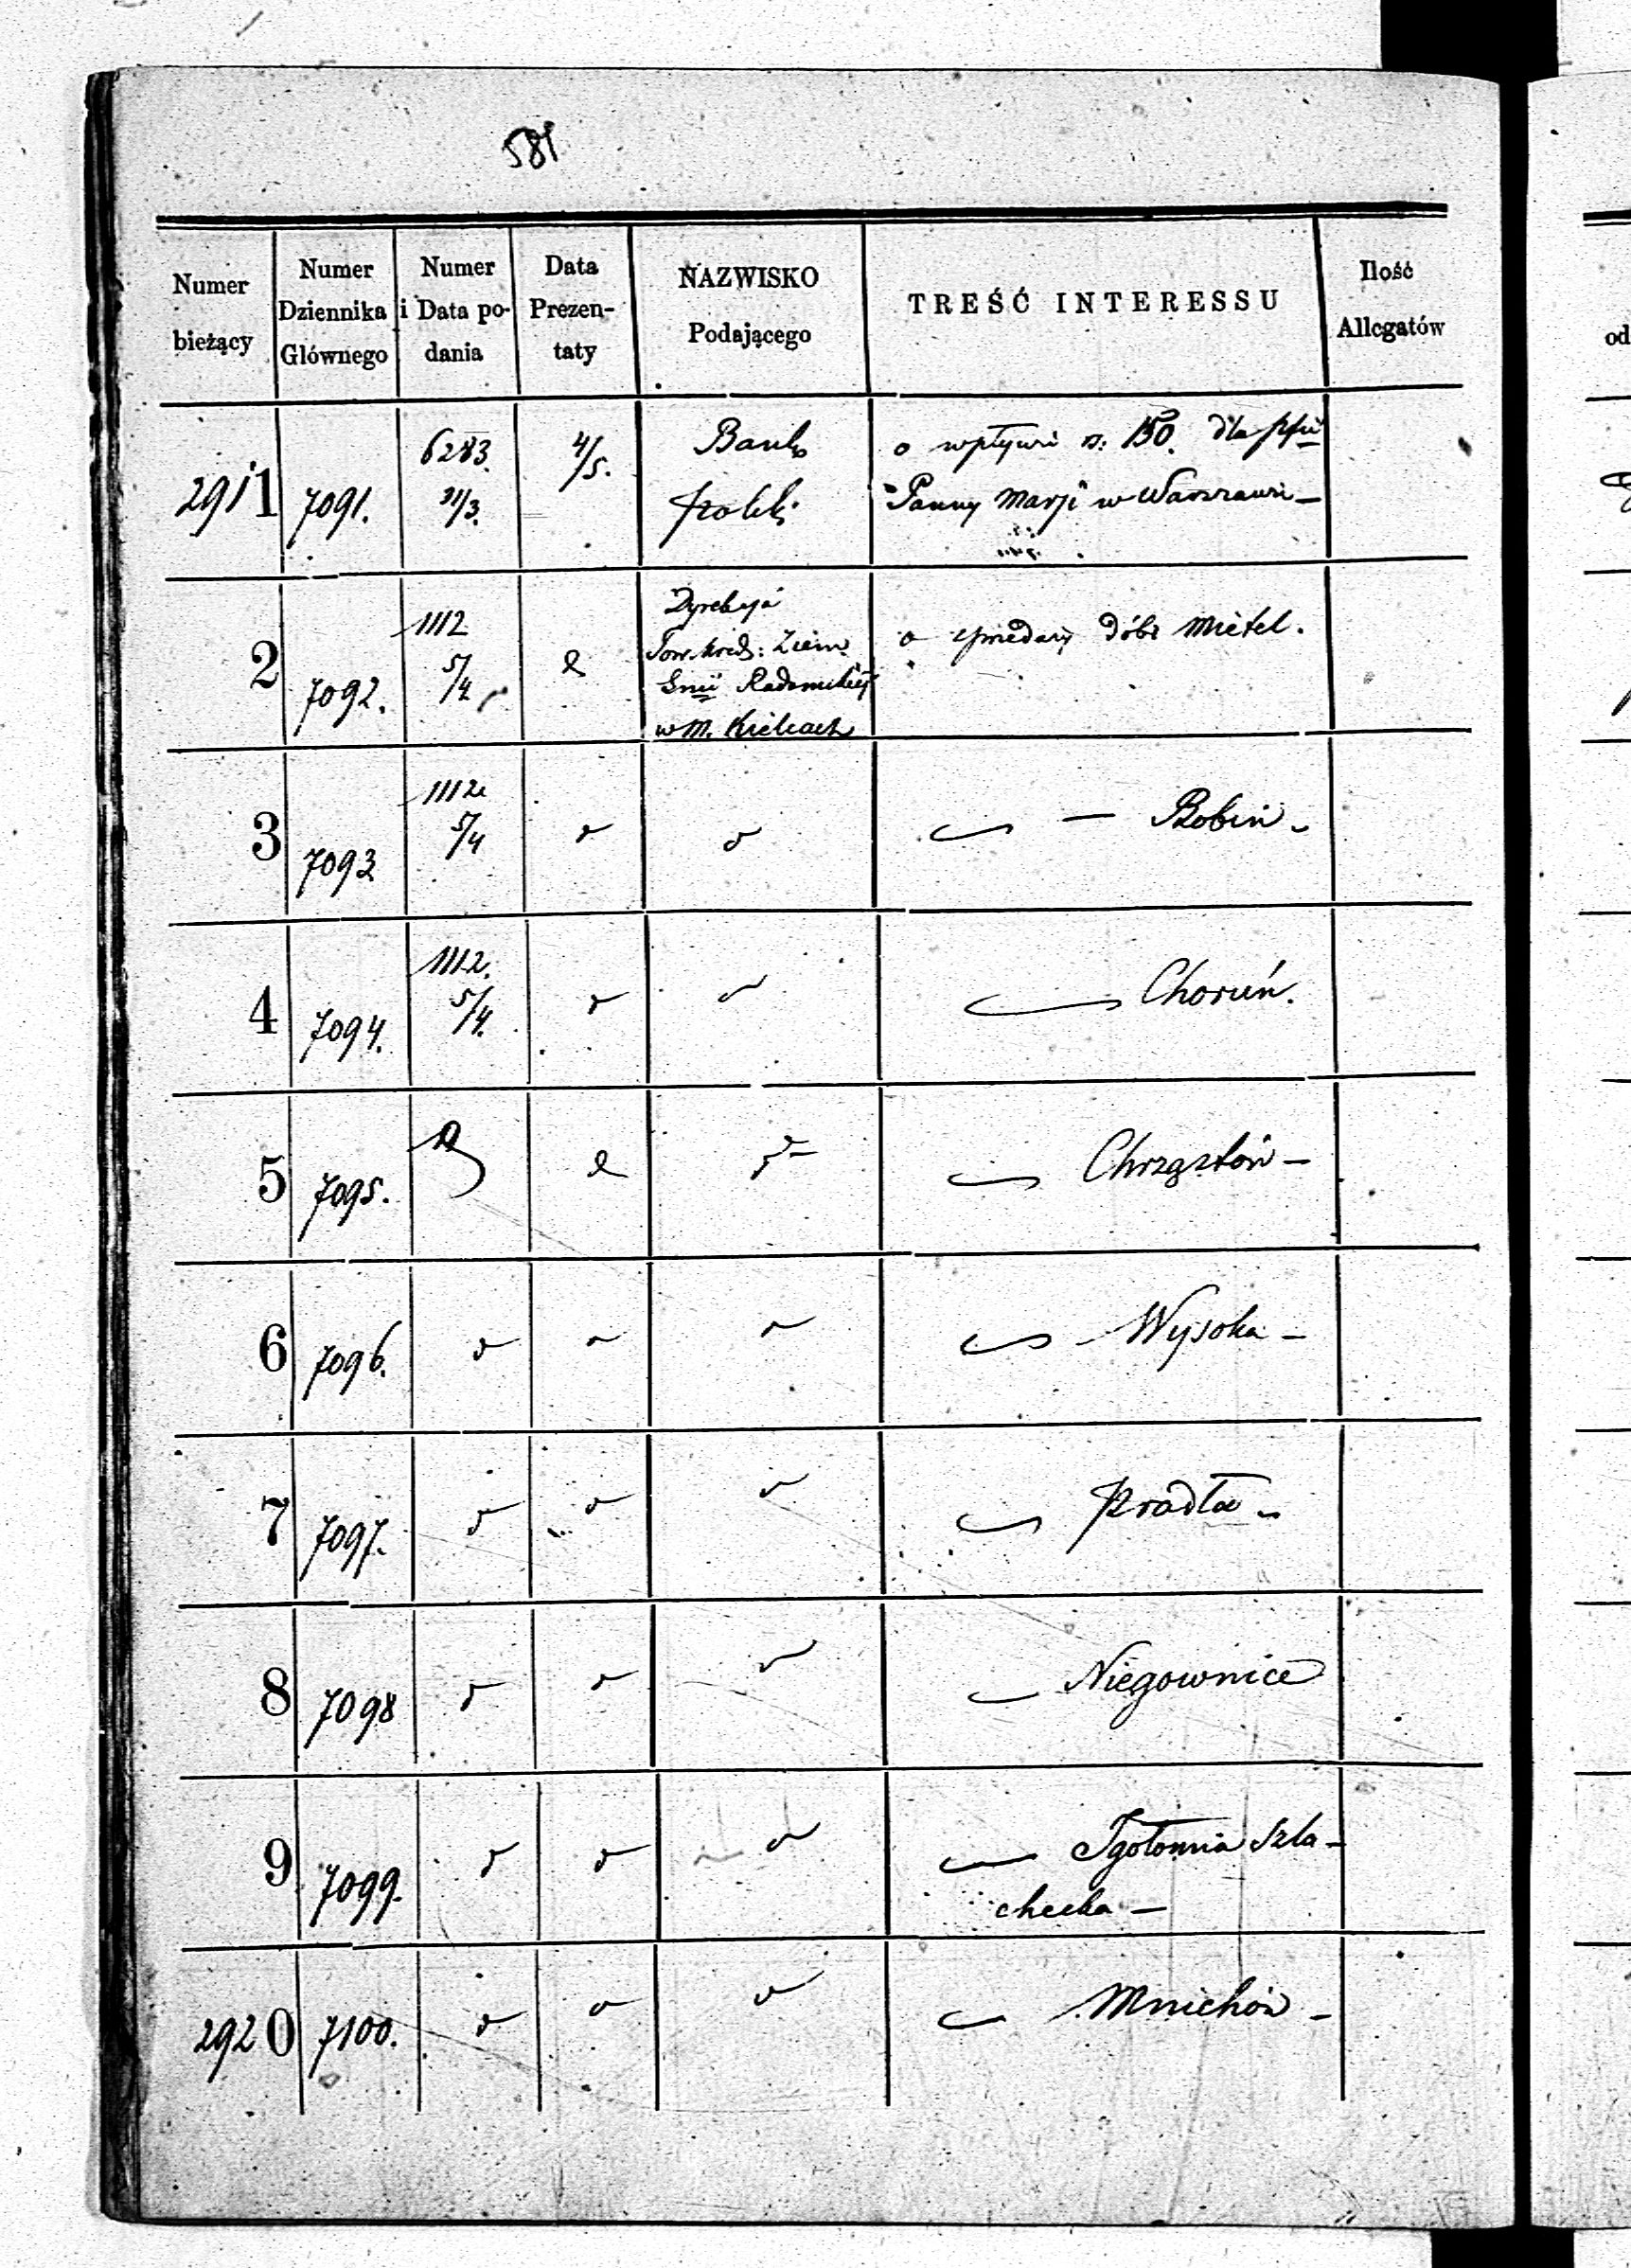 581
Numer bieżący
Numer Dziennika Głównego
Numer i Data podania
Data Prezentaty
NAZWISKO Podającego
TREŚĆ INTERESSU
Ilość Allegatów
od
2911 7091. 6283. 31/3. 4/5. Bank Polski o wpływie rs: 150. dla
Panny Marji w Warszawie —
2 7092. 1112 5/4 Dyrekcja
Tow. Kred: Ziem.
Gnii Radomskiej
w M. Kielcach
o sprzedaży dóbr Mietel.
3 7093 1112 5/4 — Bobin
4 7094. 1112. 5/4. Choruń.
5 7095. Chrząstów —
6 7096. Wysoka —
7 7097. Pradła
8 7098 Niegownice
9 7099. Igołomia Szla-
checka —
2920 7100. Mnichów —